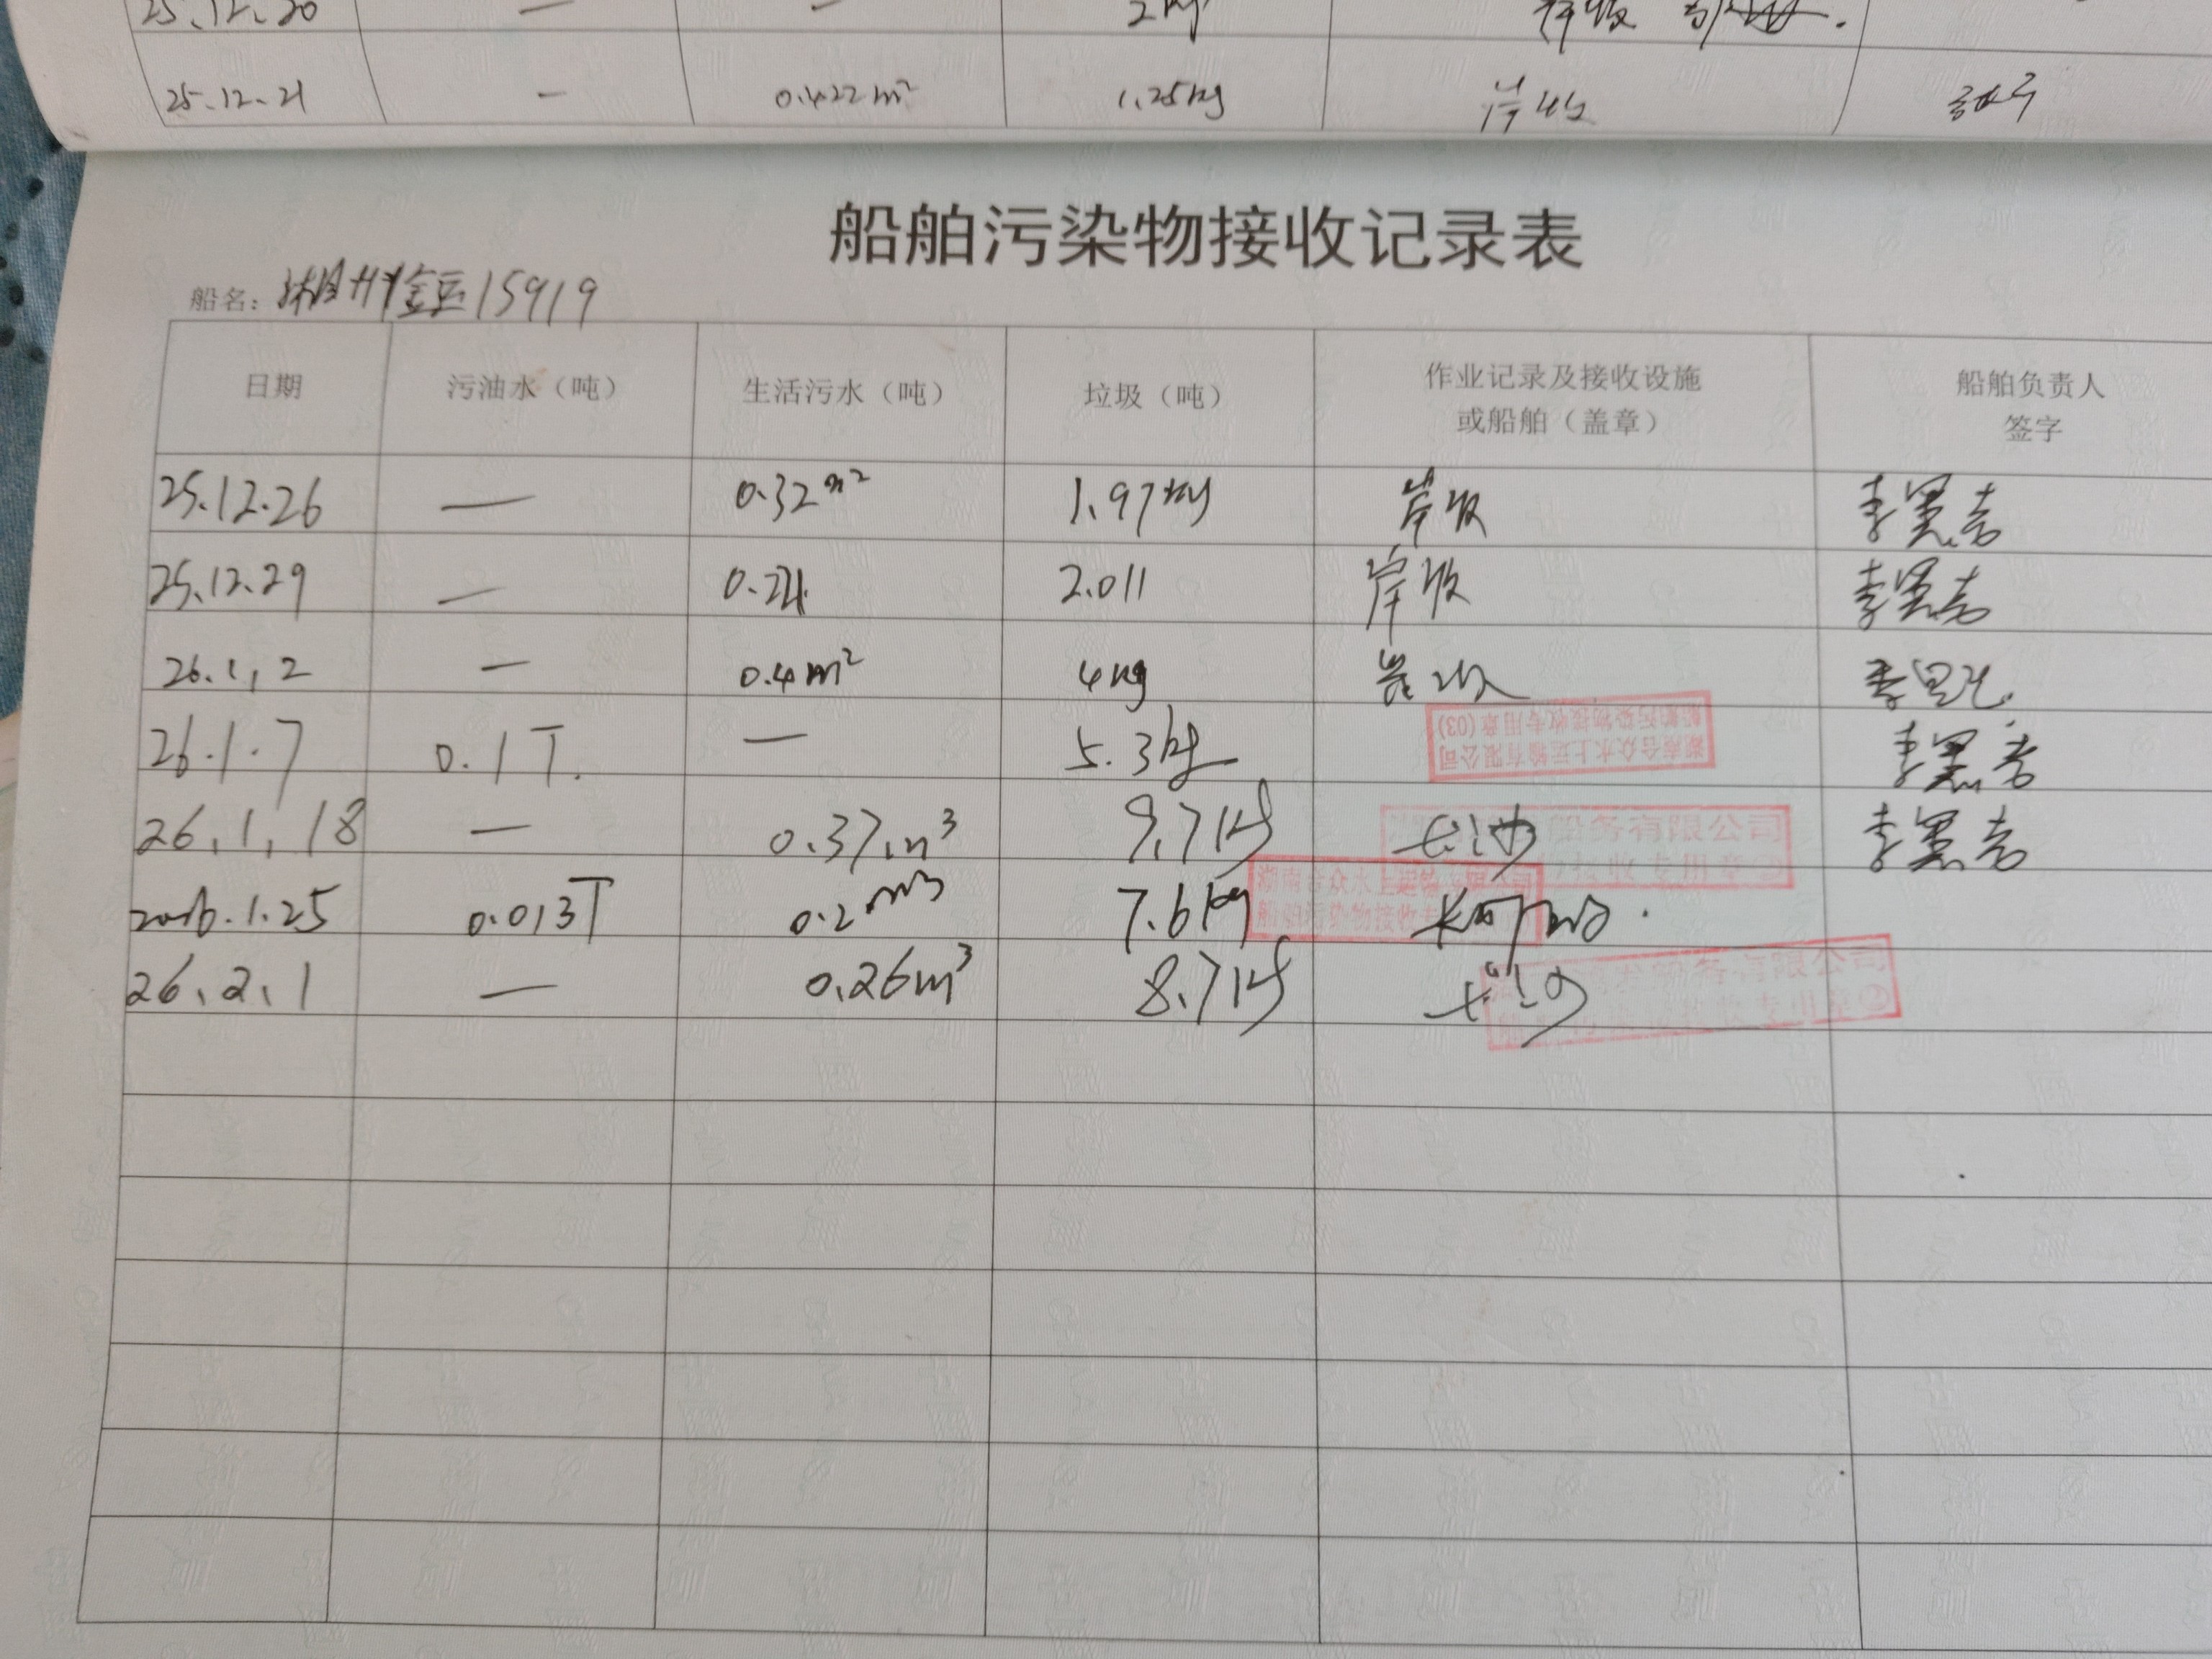 25.12.20 — — 2kg 岸收
25.12.21 — 0.422m² 1.25kg 岸收
船舶污染物接收记录表
船名: 湘州金豆15919
日期 污油水（吨） 生活污水（吨） 垃圾（吨） 作业记录及接收设施 船舶负责人
或船舶（盖章） 签字
25.12.26 — 0.32m² 1.97kg 岸收
25.12.29 — 2.011 岸收
26.1,2 — 0.4m² 4kg 岸收
湖南合众水上运输有限公司
船舶污染物接收专用章(03)
26.1.7 0.1T. — 5.3kg
26,1,18 — 0.37m³ 9.7kg 长沙
船务有限公司
接收专用章②
2026.1.25 0.013T 0.2m³ 7.6kg
湖南合众水上运输有限公司
船舶污染物接收专
26,2,1 — 0.26m³ 8.7kg 长沙
船务有限公司
接收专用章②